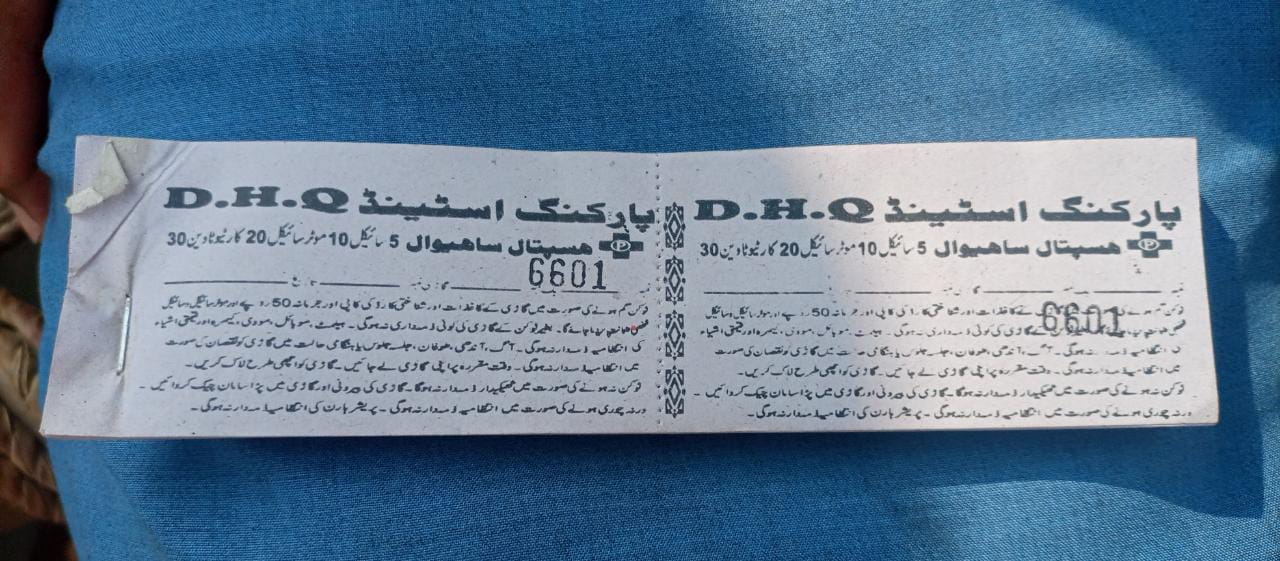 D.H.Q پارکنگ اسٹینڈ
ہسپتال ساہیوال 5 سائیکل 10 موٹر سائیکل 20 کار ٹیوٹا وین 30
6601
گاڑی نمبر تاریخ
ٹوکن گم ہونے کی صورت میں گاڑی کے کاغذات اور شناختی کارڈ کی کاپی اور جرمانہ 50 روپے اور موٹر سائیکل، سائیکل
بغیر ٹوکن کے گاڑی کی کوئی ذمہ داری نہ ہوگی۔ ہیلمٹ، موبائل، مووی، کیمرہ اور قیمتی اشیاء
کی انتظامیہ ذمہ دار نہ ہوگی۔ آگ، آندھی، طوفان، جلسے جلوس یا ہنگامی حالت میں گاڑی کو نقصان کی صورت
میں انتظامیہ ذمہ دار نہ ہوگی۔ وقت مقررہ پر اپنی گاڑی لے جائیں۔ گاڑی کو اچھی طرح لاک کریں۔
ٹوکن نہ ہونے کی صورت میں ٹھیکیدار ذمہ دار نہ ہوگا۔ گاڑی کی بیرونی اور گاڑی میں پڑا سامان چیک کروائیں۔
ورنہ چوری ہونے کی صورت میں انتظامیہ ذمہ دار نہ ہوگی۔ پریشر ہارن کی انتظامیہ ذمہ دار نہ ہوگی۔
D.H.Q پارکنگ اسٹینڈ
ہسپتال ساہیوال 5 سائیکل 10 موٹر سائیکل 20 کار ٹیوٹا وین 30
ٹوکن گم ہونے کی صورت میں گاڑی کے کاغذات اور شناختی کارڈ کی کاپی اور جرمانہ 50 روپے اور موٹر سائیکل، سائیکل
6601
گاڑی کی کوئی ذمہ داری نہ ہوگی۔ ہیلمٹ، موبائل، مووی، کیمرہ اور قیمتی اشیاء
کی انتظامیہ ذمہ دار نہ ہوگی۔ آگ، آندھی، طوفان، جلسے جلوس یا ہنگامی حالت میں گاڑی کو نقصان کی صورت
میں انتظامیہ ذمہ دار نہ ہوگی۔ وقت مقررہ پر اپنی گاڑی لے جائیں۔ گاڑی کو اچھی طرح لاک کریں۔
ٹوکن نہ ہونے کی صورت میں ٹھیکیدار ذمہ دار نہ ہوگا۔ گاڑی کی بیرونی اور گاڑی میں پڑا سامان چیک کروائیں۔
ورنہ چوری ہونے کی صورت میں انتظامیہ ذمہ دار نہ ہوگی۔ پریشر ہارن کی انتظامیہ ذمہ دار نہ ہوگی۔